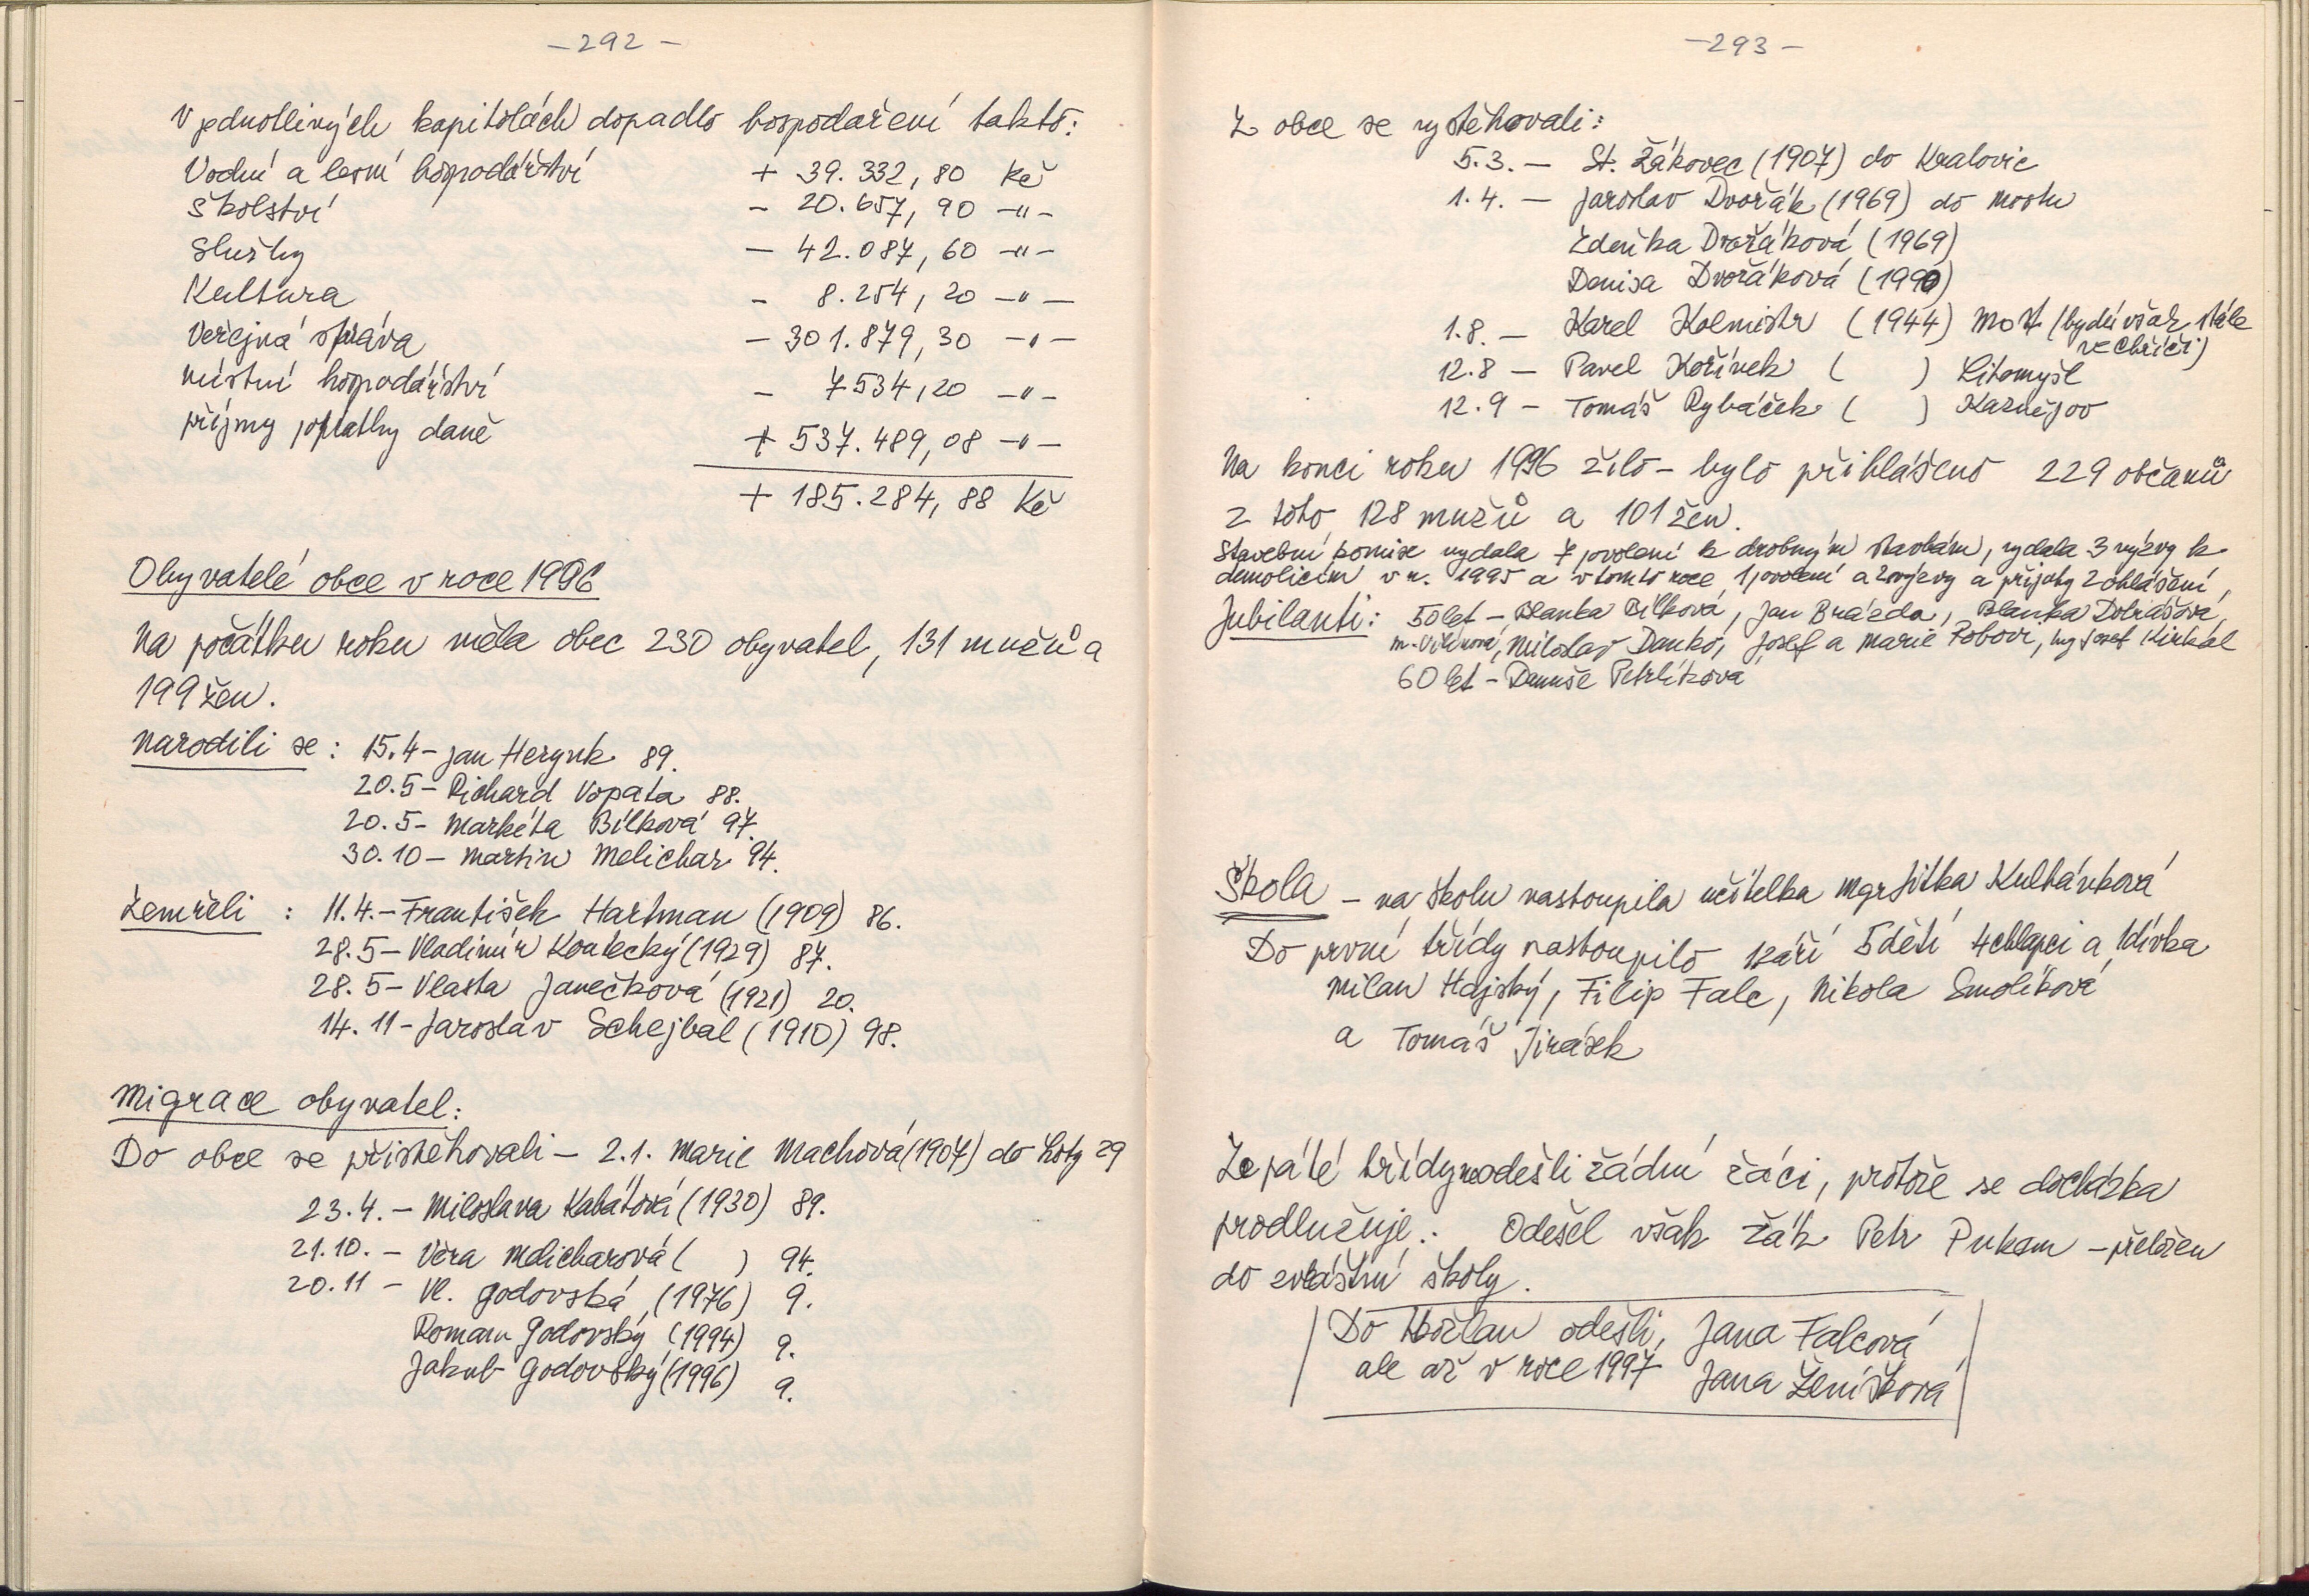 -292-
V jednotlivých kapitolách dopadlo hospodaření takto:
Vodní a lesní hospodářství + 39.332,80 Kč
Školství - 20.657,90 -"-
Služby - 42.087,60 -"-
Kultura - 8.254,20 -"-
Veřejná správa - 301.879,30 -"-
místní hospodářství - 7534,20 -"-
příjmy poplatky daně + 537.489,08 -"-
+ 185.284,88 Kč
Obyvatelé obce v roce 1996
Na počátku roku měla obec 230 obyvatel, 131 mužů a
199 žen.
Narodili se: 15.4 - Jan Herynk 89.
20.5 - Richard Vopata 88.
20.5 - Markéta Bílková 97.
30.10 - Martin Melichar 94.
Zemřeli : 11.4. - František Hartman (1909) 86.
28.5 - Vladimír Koutecký (1929) 87.
28.5 - Vlasta Janečková (1921) 20.
14.11 - Jaroslav Schejbal (1910) 98.
Migrace obyvatel:
Do obce se přistěhovali - 2.1. Marie Machová (1907) do Loty 29
23.4. - Miloslava Kabátová (1930) 89.
21.10. - Věra Melicharová ( ) 94.
20.11 - Vl. Godovská (1976) 9.
Roman Godovský (1994) 9.
Jakub Godovský (1996) 9.
-293-
Z obce se vystěhovali:
5.3. - St. Žákovec (1907) do Kralovic
1.4. - Jaroslav Dvořák (1969) do Mostu
Zdeňka Dvořáková (1969)
Denisa Dvořáková (1990)
1.8. - Karel Kolmistr (1944) Most (bydlí však stále
ve Chříči)
12.8 - Pavel Kořínek ( ) Litomyšl
12.9 - Tomáš Rybáček ( ) Kaznějov
Na konci roku 1996 žilo - bylo přihlášeno 229 občanů
z toho 128 mužů a 101 žen.
Stavební komise vydala 7 povolení k drobným stavbám, vydala 3 výzvy k
demolicím v r. 1995 a v tomto roce 1 povolení a 2 výzvy a přijaty 2 ohlášení,
Jubilanti: 50 let - Blanka Bílková, Jan Brázda, Blanka Dobrášová,
Miloslav Danko, Josef a Marie
60 let - Danuše Petrlíková
Škola - na školu nastoupila učitelka Mgr Jitka Kultánková
Do první třídy nastoupilo v září 5 dětí 4 chlapci a 1 dívka
Milan Hajský, Filip Falc, Nikola Smolíková
a Tomáš Jirásek
Ze páté třídy neodešli žádní žáci, protože se docházka
prodlužuje. Odešel však žák Petr Pukam - přeložen
do zvláštní školy.
Do Hožlan odešli, Jana Falcová
ale až v roce 1997 Jana Ženíšková